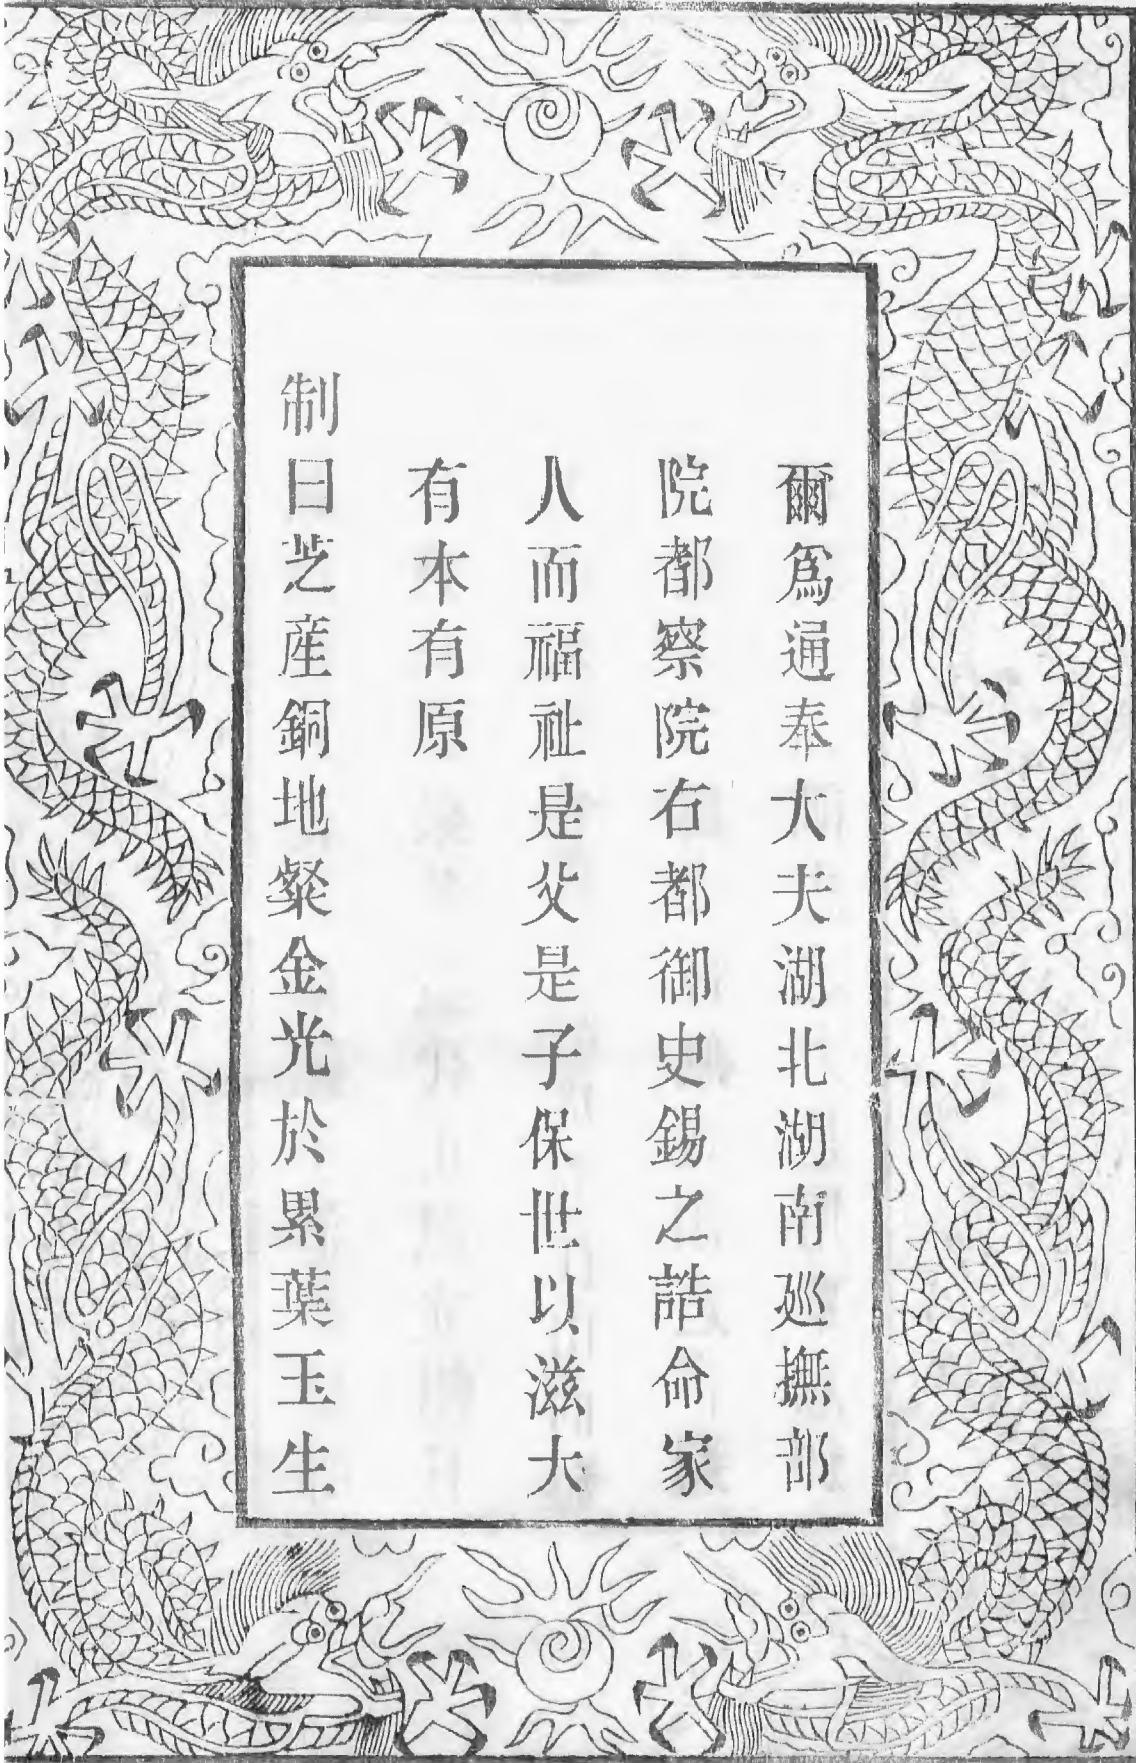 爾爲通奉大夫湖北湖南廵撫部
院都察院右都御史錫之誥命家
人而福祉是父是子保世以滋大
有本有原
制曰芝産銅地粲金光於累葉玉生